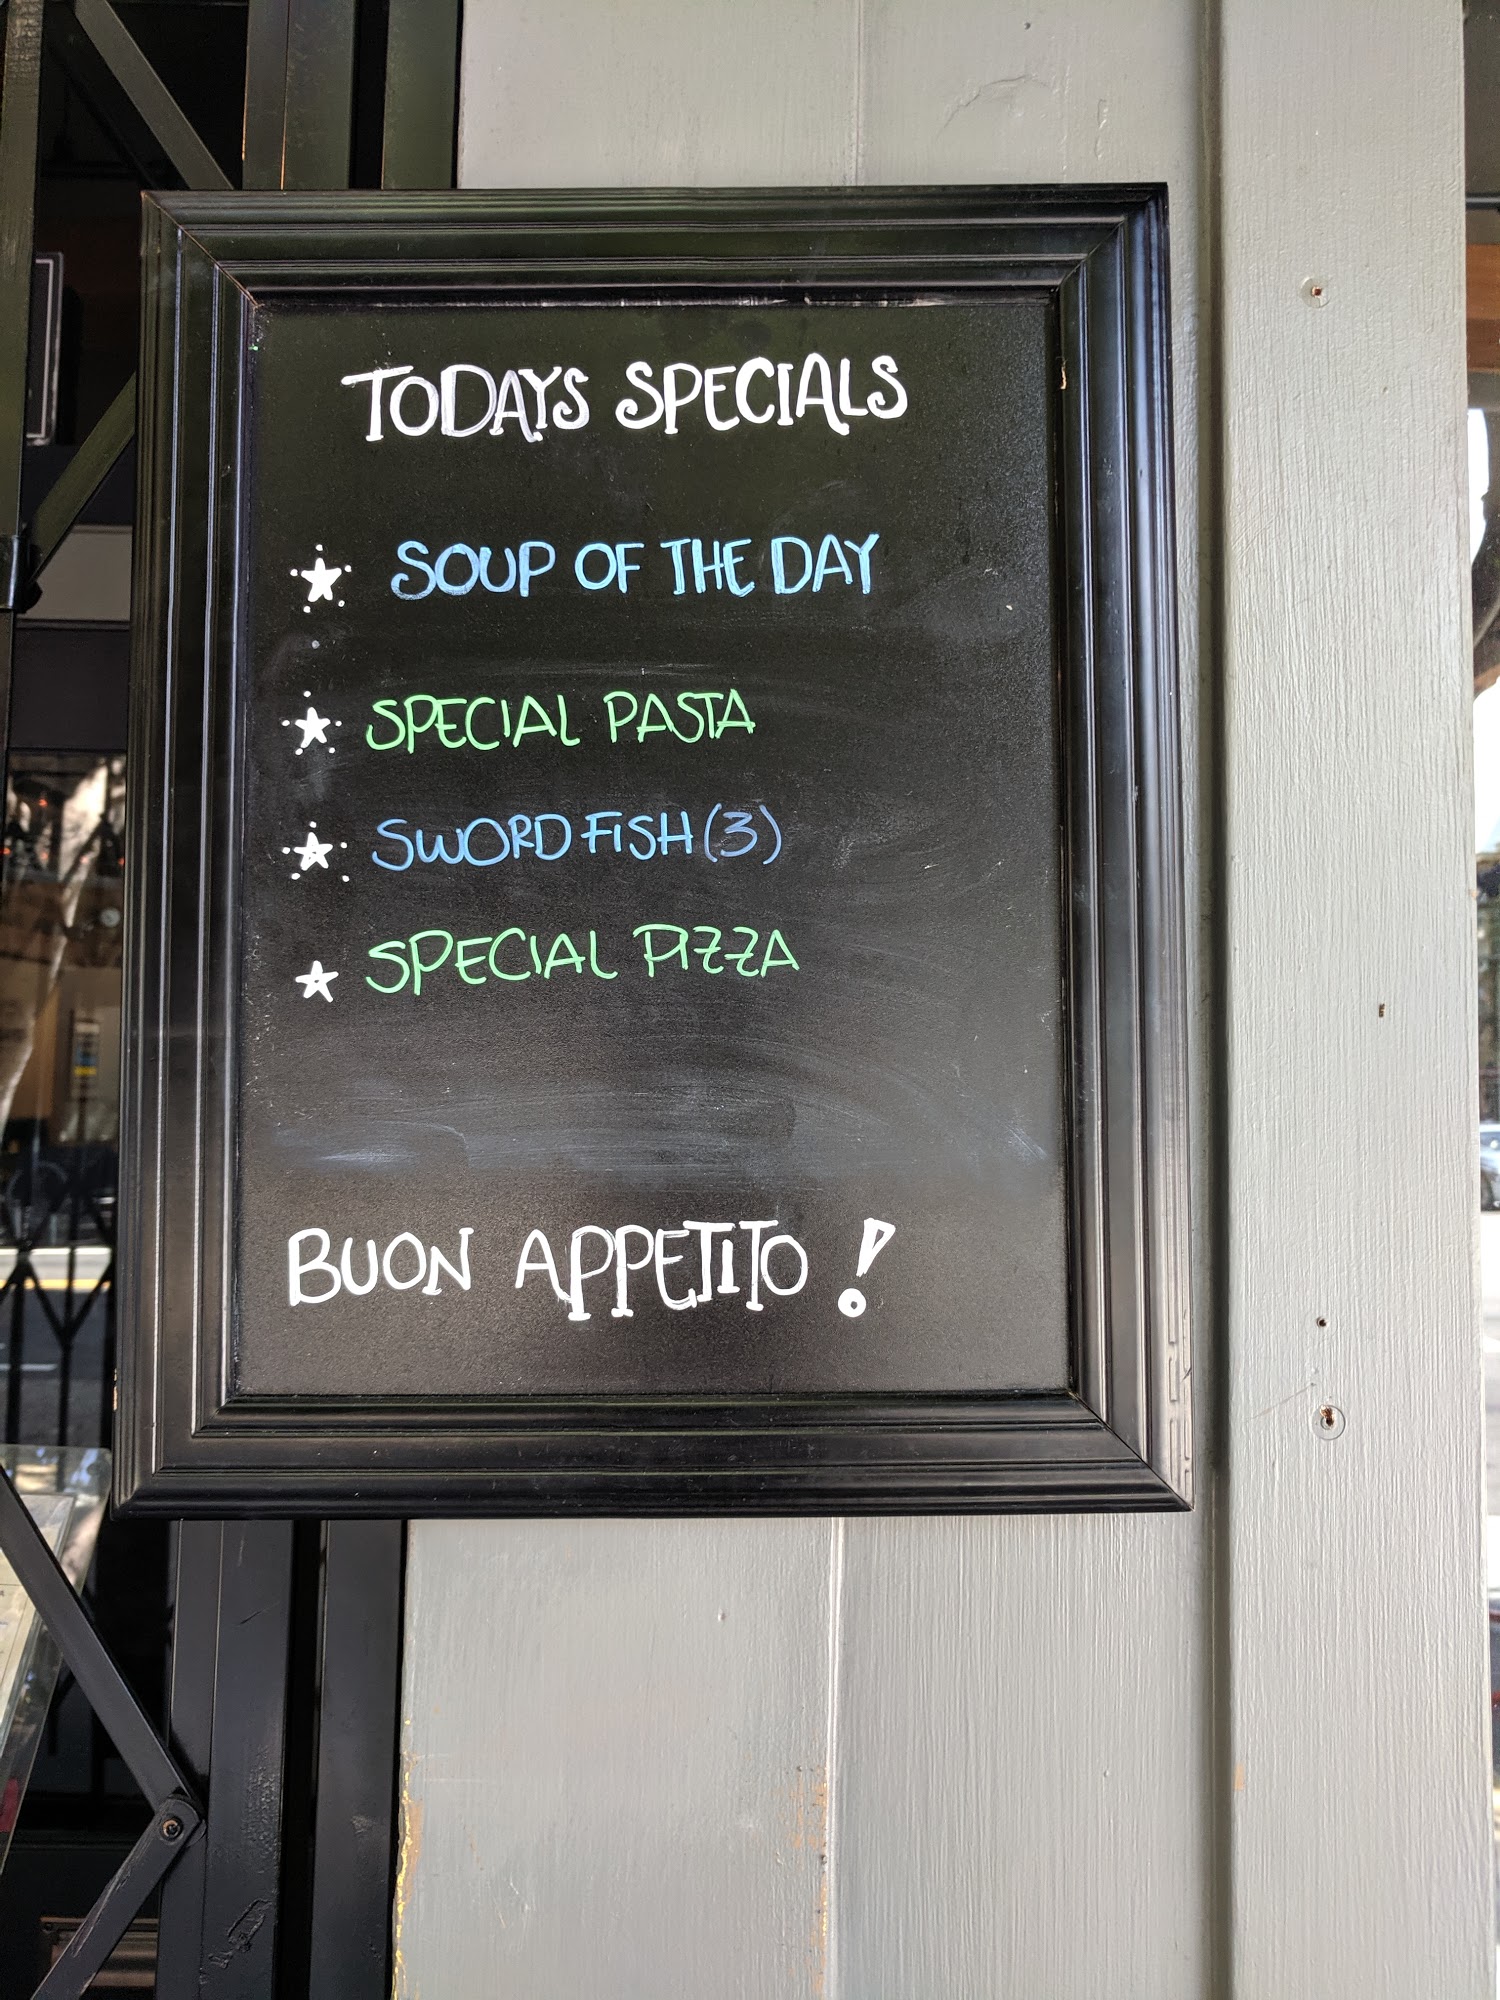 TODAYS SPECIALS
SOUP OF THE DAY
SPECIAL PASTA
SWORD FISH (3)
SPECIAL PIZZA
BUON APPETITO!